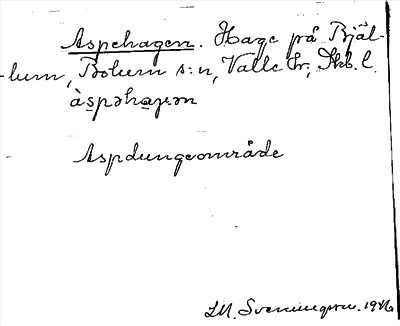 Aspehagen. Hage på Bjäl-
lum, Bolum s:n, Valle hr, Skb. l.
àspəhaɡən
Aspdungeområde
LM. Svenungsson. 1946